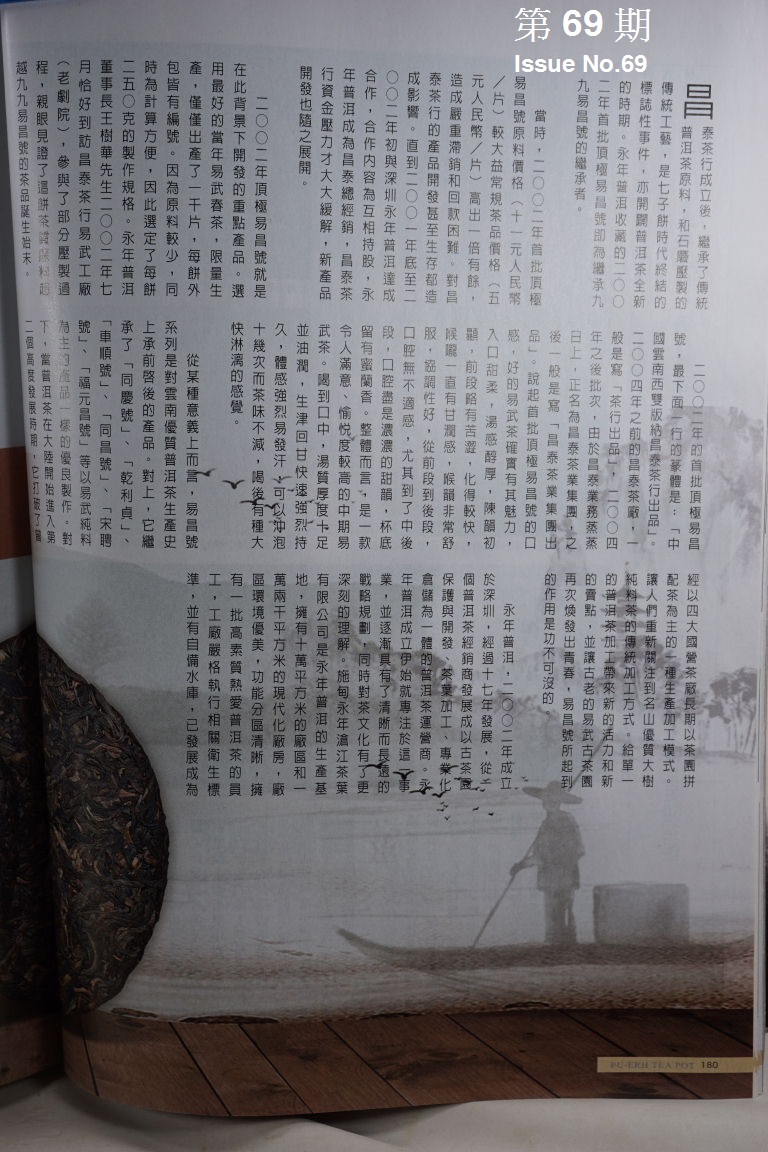 第 69 期
Issue No.69
昌
泰茶行成立後，繼承了傳統
普洱茶原料，和石磨壓製的
傳統工藝，是七子餅時代終結的
標誌性事件，亦開闢普洱茶全新
的時期。永年普洱收藏的二〇〇
二年首批頂極易昌號即為繼承九
九易昌號的繼承者。
當時，二〇〇二年首批頂極
易昌號原料價格（十一元人民幣
／片）較大益常規茶品價格（五
元人民幣／片）高出一倍有餘，
造成嚴重滯銷和回款困難。對昌
泰茶行的產品開發甚至生存都造
成影響。直到二〇〇一年底至二
〇〇二年初與深圳永年普洱達成
合作，合作內容為互相持股，永
年普洱成為昌泰總經銷，昌泰茶
行資金壓力才大大緩解，新產品
開發也隨之展開。
二〇〇二年頂極易昌號就是
在此背景下開發的重點產品。選
用最好的當年易武春茶，限量生
產，僅僅出產了一千片，每餅外
包皆有編號。因為原料較少，同
時為計算方便，因此選定了每餅
二五〇克的製作規格。永年普洱
董事長王樹華先生二〇〇二年七
月恰好到訪昌泰茶行易武工廠
（老劇院），參與了部分壓製過
程，親眼見證了這餅茶
越九九易昌號的茶品誕生始末。
二〇〇二年的首批頂極易昌
號，最下面一行的篆體是：「中
國雲南西雙版納昌泰茶行出品」。
二〇〇四年之前的昌泰茶廠，一
般是寫「茶行出品」，二〇〇四
年之後批次，由於昌泰業務蒸蒸
日上，正名為昌泰茶業集團，之
後一般是寫「昌泰茶業集團出
品」。說起首批頂極易昌號的口
感，好的易武茶確實有其魅力，
入口甜柔，湯感醇厚，陳韻初
顯，前段略有苦澀，化得較快，
喉嚨一直有甘潤感，喉韻非常舒
服，協調性好，從前段到後段，
口腔無不適感，尤其到了中後
段，口腔盡是濃濃的甜韻，杯底
留有蜜蘭香。整體而言，是一款
令人滿意、愉悅度較高的中期易
武茶。喝到口中，湯質厚度十足
並油潤，生津回甘快速強烈持
久，體感強烈易發汗，可以沖泡
十幾次而茶味不減，喝後有種大
快淋漓的感覺。
從某種意義上而言，易昌號
系列是對雲南優質普洱茶生產史
上承前啓後的產品。對上，它繼
承了「同慶號」、「乾利貞」、
「車順號」、「同昌號」、「宋聘
號」、「福元昌號」等以易武純料
為主的產品一樣的優良製作。對
下，當普洱茶在大陸開始進入第
二個高度發展時期，它打破了
經以四大國營茶廠長期以茶園拼
配茶為主的一種生產加工模式。
讓人們重新關注到名山優質大樹
純料茶的傳統加工方式。給單一
的普洱茶加工帶來新的活力和新
的賣點，並讓古老的易武古茶園
再次煥發出青春，易昌號所起到
的作用是功不可沒的。
永年普洱，二〇〇二年成立
於深圳，經過十七年發展，從一
個普洱茶經銷商發展成以古茶園
保護與開發、茶葉加工、專業化
倉儲為一體的普洱茶運營商。永
年普洱成立伊始就專注於這一事
業，並逐漸具有了清晰而長遠的
戰略規劃，同時對茶文化有了更
深刻的理解。施甸永年滄江茶葉
有限公司是永年普洱的生產基
地，擁有十萬平方米的廠區和一
萬兩千平方米的現代化廠房，廠
區環境優美，功能分區清晰，擁
有一批高素質熱愛普洱茶的員
工，工廠嚴格執行相關衛生標
準，並有自備水庫，已發展成為
PU-ERH TEA POT 180